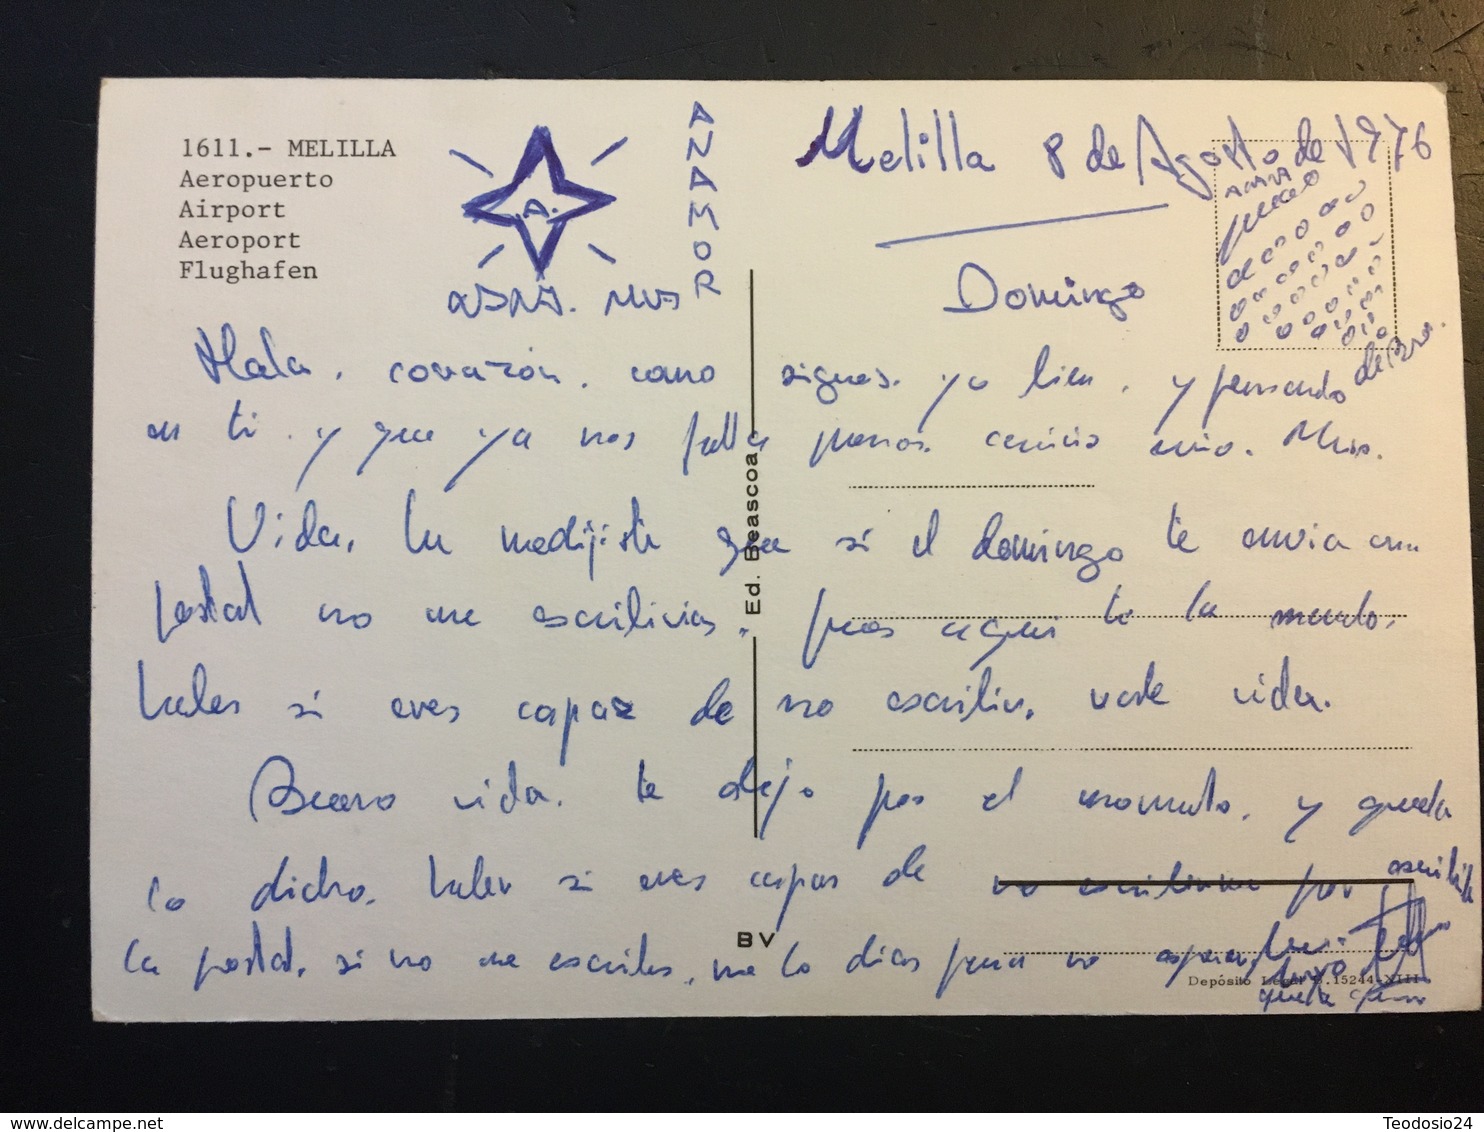 1611.- MELILLA
Aeropuerto
Airport
Aeroport
Flughafen
.A.
ANAMOR
Melilla 8 de Agosto de 1976
Domingo
Hola, corazón, como sigues, yo bien, y pensando
en ti, y que ya nos falta menos, cariño mio.
Vida, tu me dijiste que si el domingo te envia una
postal no me escribirias, pues aqui te la mando,
haber si eres capaz de no escribir, vale vida.
Bueno vida, te dejo por el momento, y queda
lo dicho, haber si eres capas de no escribirme por
la postal, si no me escribes, me lo dices para no esperar
que te quiero
Ed. Beascoa
BV
Depósito Legal B. 15244-XIII
Teodosio24